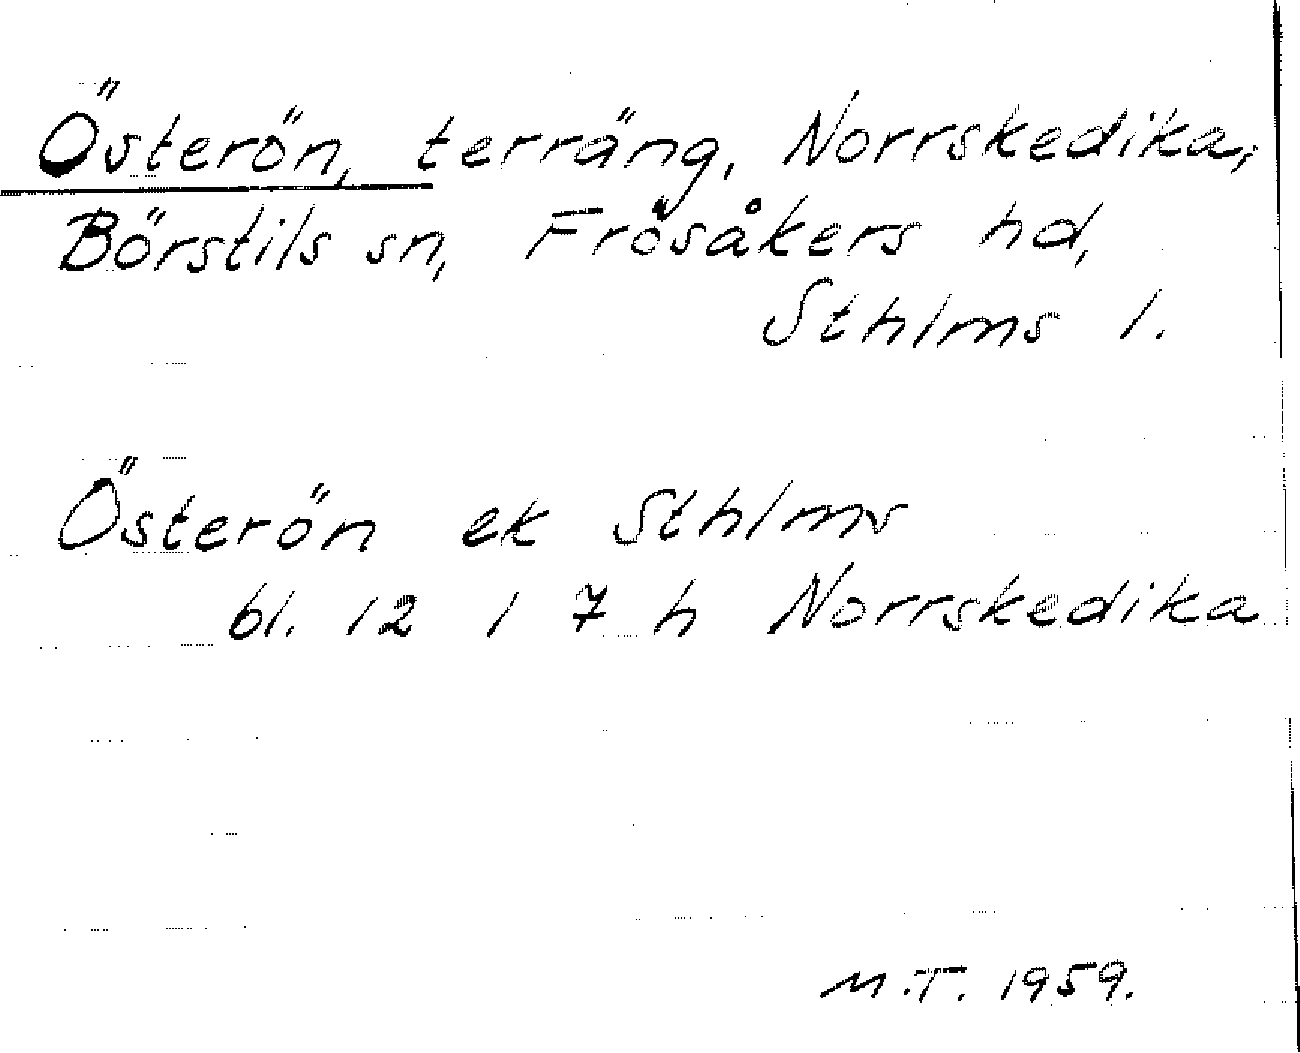 Österön, terräng, Norrskedika,
Börstils sn, Frösåkers hd,
Sthlms l.
Österön ek Sthlms
bl. 12 1 7 h Norrskedika
M.T. 1959.